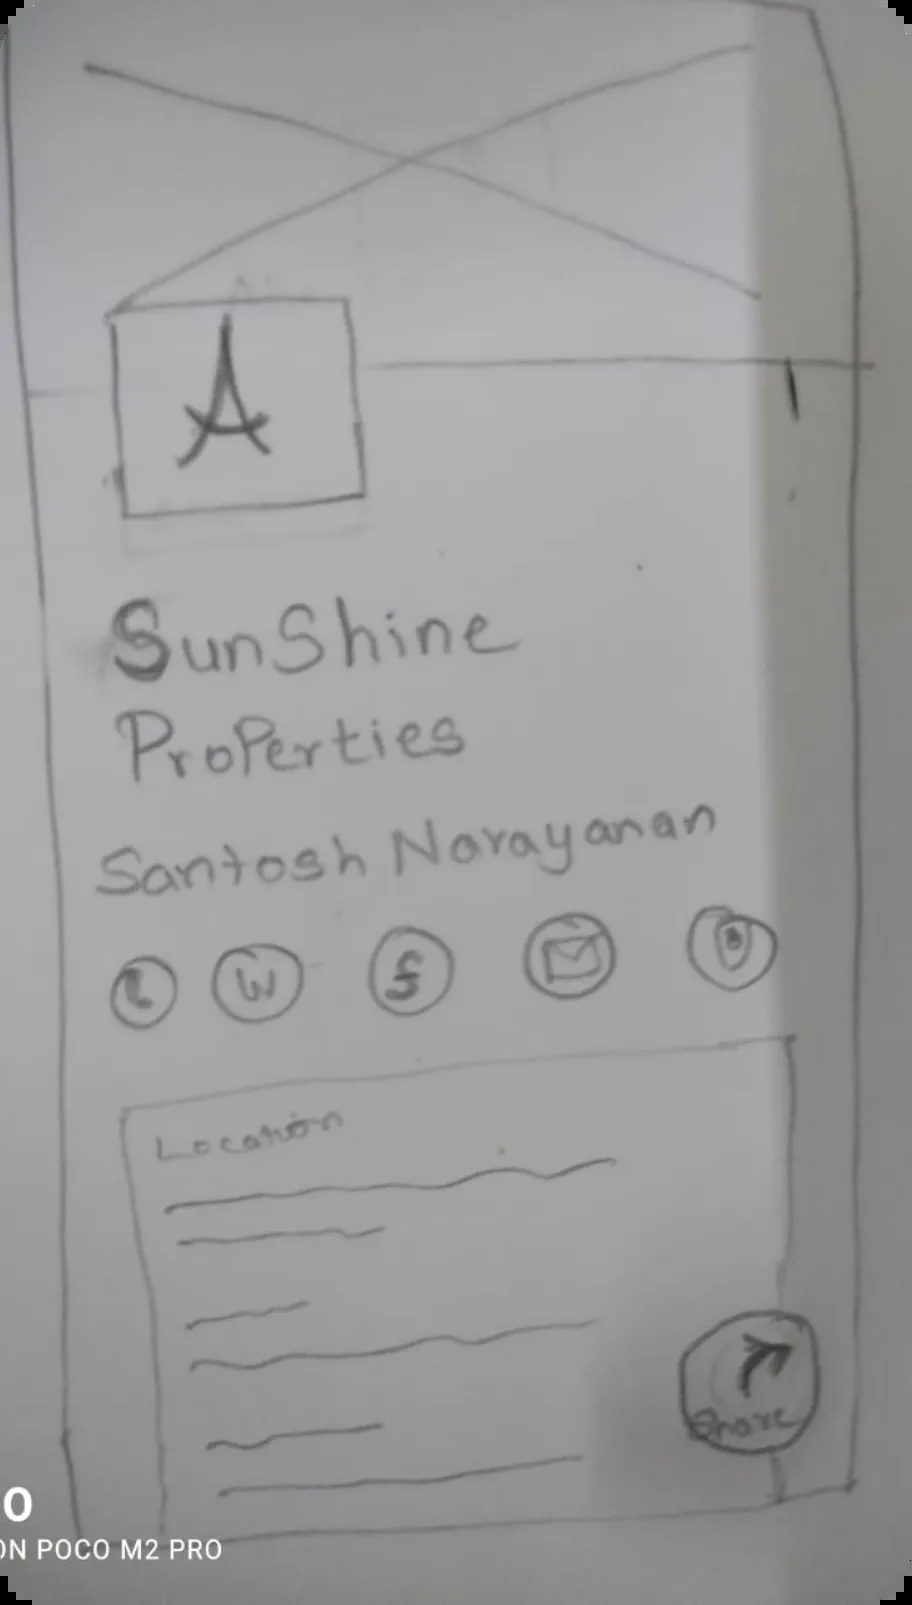 A
SunShine
Properties
Santosh Narayanan
W f
Location
Share
O
ON POCO M2 PRO